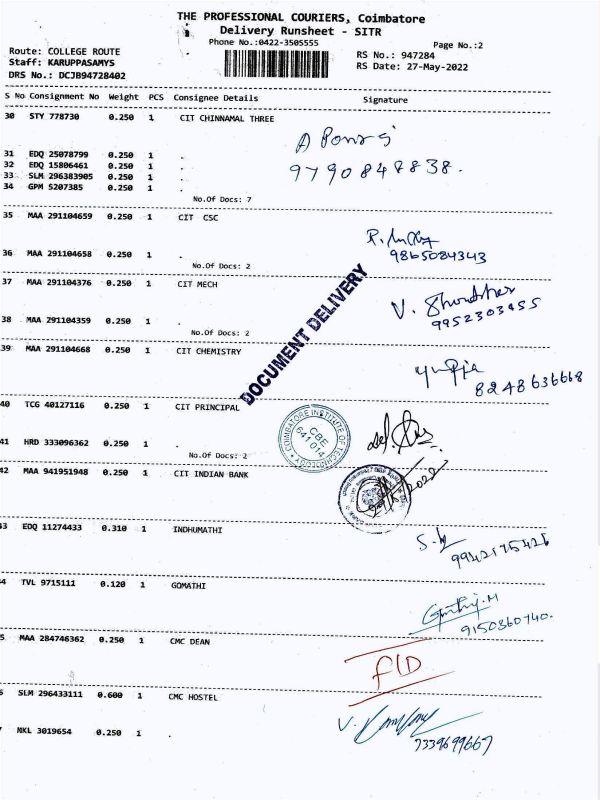 THE PROFESSIONAL COURIERS, Coimbatore
Delivery Runsheet - SITR
Phone No.:0422-3505555
Page No.:2
Route: COLLEGE ROUTE
Staff: KARUPPASAMYS
DRS No.: DCJB94728402
RS No.: 947284
RS Date: 27-May-2022
S No Consignment No Weight PCS Consignee Details Signature
30 STY 778730 0.250 1 CIT CHINNAMAL THREE
31 EDQ 25078799 0.250 1 .
32 EDQ 15806461 0.250 1 .
33 SLM 296383905 0.250 1 .
34 GPM 5207385 0.250 1 .
9790847838.
No.Of Docs: 7
35 MAA 291104659 0.250 1 CIT CSC
36 MAA 291104658 0.250 1 .
9865084343
No.Of Docs: 2
37 MAA 291104376 0.250 1 CIT MECH
38 MAA 291104359 0.250 1 .
9952303455
No.Of Docs: 2
39 MAA 291104668 0.250 1 CIT CHEMISTRY
8248636668
DOCUMENT DELIVERY
40 TCG 40127116 0.250 1 CIT PRINCIPAL
41 HRD 333096362 0.250 1 .
No.Of Docs: 2
COIMBATORE INSTITUTE OF TECHNOLOGY
CBE
641 014
42 MAA 941951948 0.250 1 CIT INDIAN BANK
3 EDQ 11274433 0.310 1 INDHUMATHI
9942175426
4 TVL 9715111 0.120 1 GOMATHI
9150360740.
5 MAA 284746362 0.250 1 CMC DEAN
FID
SLM 296433111 0.600 1 CMC HOSTEL
NKL 3019654 0.250 1 .
7339699667